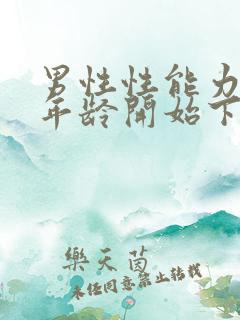 男性性能力
年龄開始下
樂天茵
未经同意禁止转载